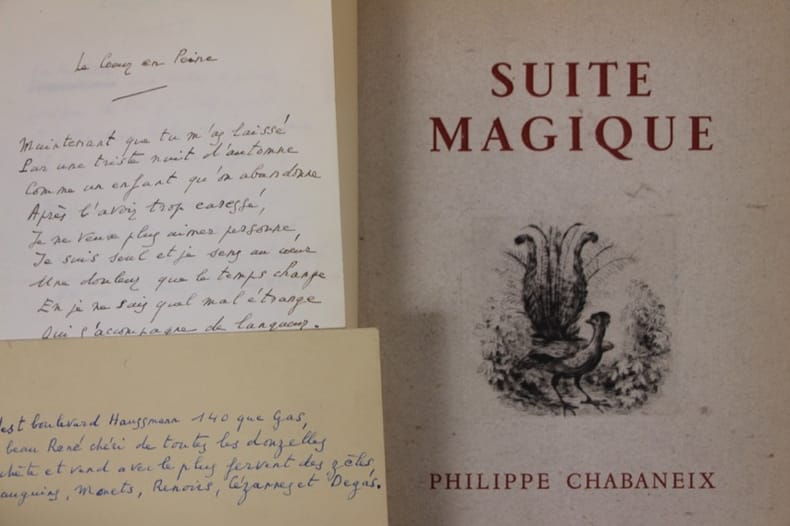 Le Coeur en Peine
Maintenant que tu m'as laissé
Par une triste nuit d'automne
Comme un enfant qu'on abandonne
Après l'avoir trop caressé,
Je ne veux plus aimer personne,
Je suis seul et je sens au coeur
Une douleur que le temps change
En je ne sais quel mal étrange
Qui s'accompagne de langueur.
'est boulevard Haussmann 140 que Gas,
beau René chéri de toutes les donzelles
chète et vend avec le plus fervent des zèles,
auguins, Monets, Renoirs, Cézannes et Degas.
SUITE
MAGIQUE
PHILIPPE CHABANEIX